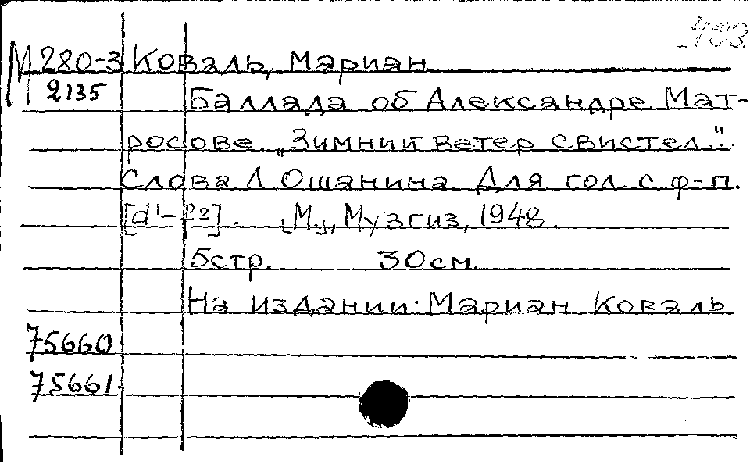 403
М 280-3 Коваль, Мариан
2135
Баллада об Александре Мат-
росове „Зимний ветер свистел."
Слова Л Ошанина Для гол. с ф-п.
[d¹-f²]. [М.], Музгиз, 1948.
5стр. 30см.
На издании: Мариан Коваль
75660
75661